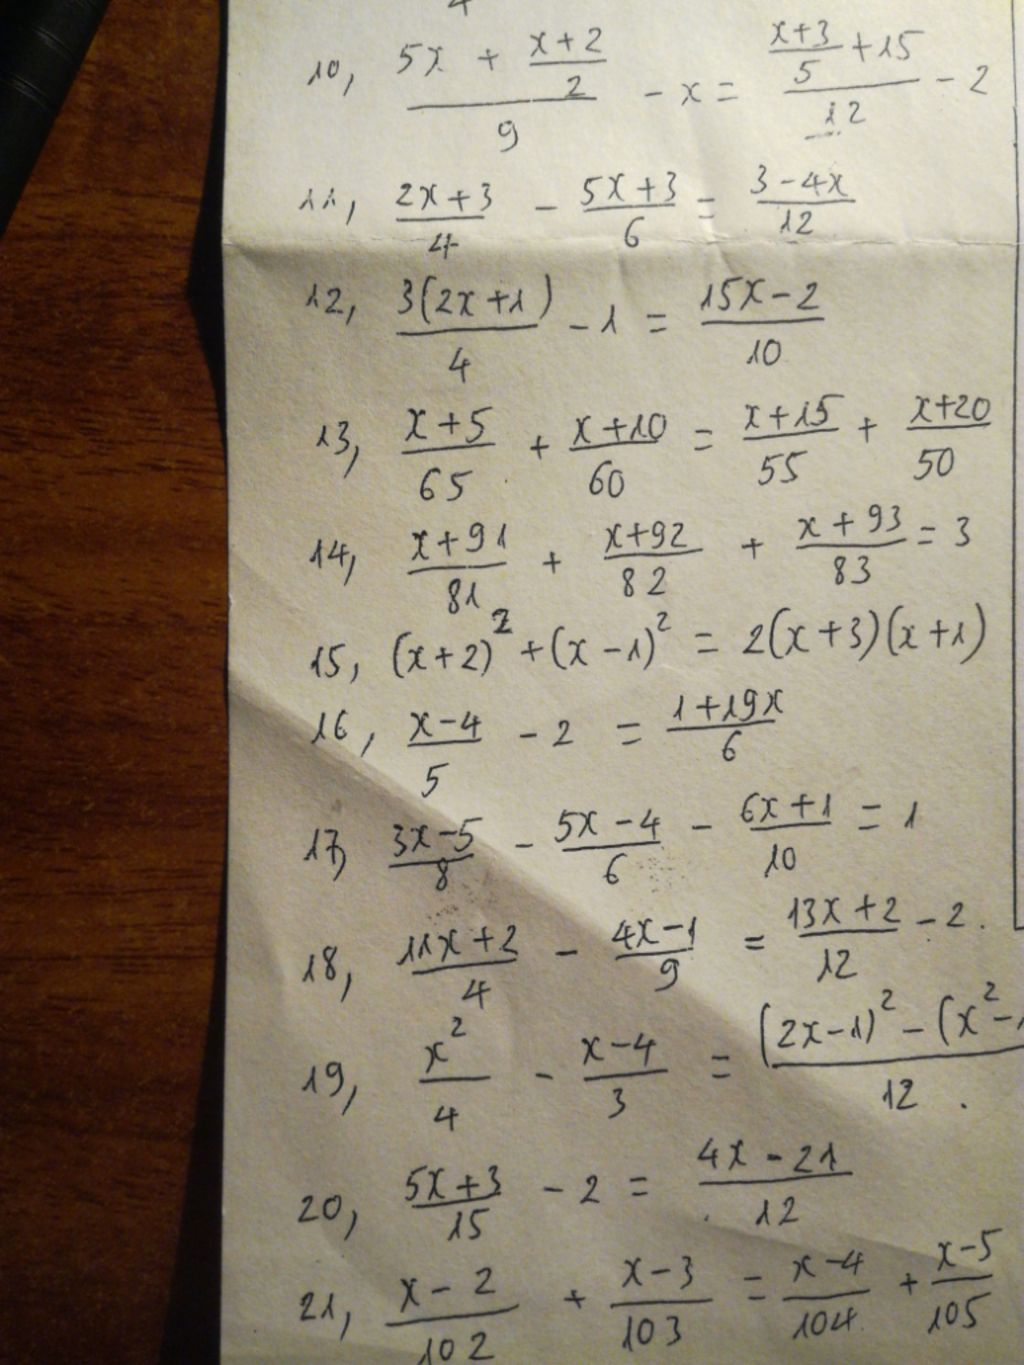 10, (5x + (x+2)/2)/9 - x = ((x+3)/5 + 15)/12 - 2
11, (2x+3)/4 - (5x+3)/6 = (3-4x)/12
12, 3(2x+1)/4 - 1 = (15x-2)/10
13, (x+5)/65 + (x+10)/60 = (x+15)/55 + (x+20)/50
14, (x+91)/81 + (x+92)/82 + (x+93)/83 = 3
15, (x+2)² + (x-1)² = 2(x+3)(x+1)
16, (x-4)/5 - 2 = (1+19x)/6
17, (3x-5)/8 - (5x-4)/6 - (6x+1)/10 = 1
18, (11x+2)/4 - (4x-1)/9 = (13x+2)/12 - 2.
19, x²/4 - (x-4)/3 = ((2x-1)² - (x²-/12.
20, (5x+3)/15 - 2 = (4x-21)/12
21, (x-2)/102 + (x-3)/103 = (x-4)/104 + (x-5)/105